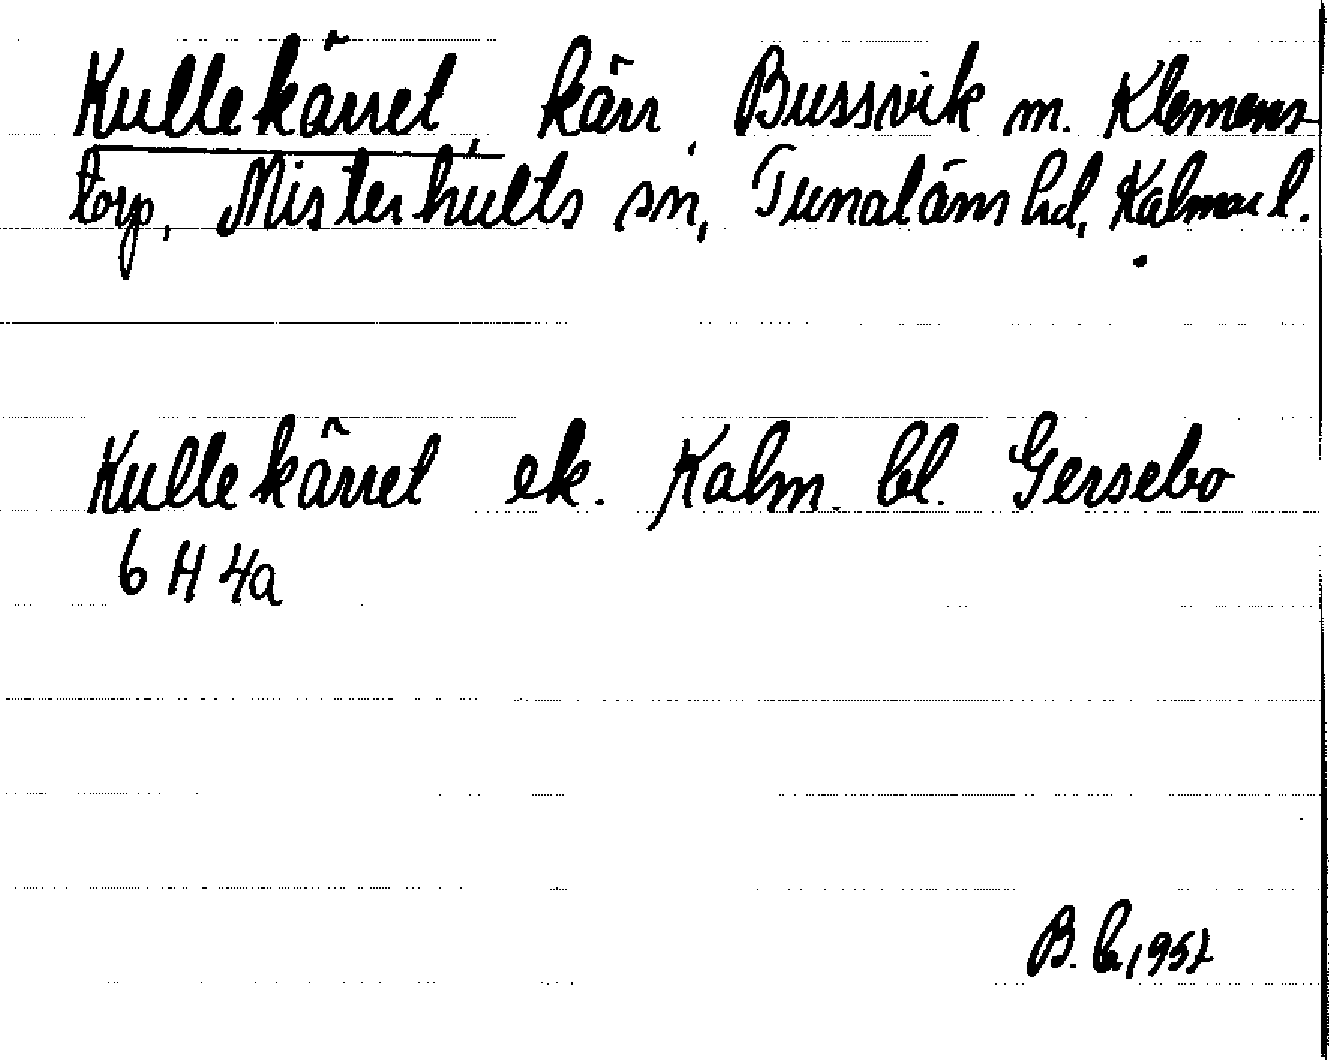 Kullekärret, kärr, Bussvik m. Klemens-
torp, Misterhults sn, Tunaläns hd, Kalmar l.
Kullekärret ek. Kalm. bl. Gersebo
6 H 4a
B.